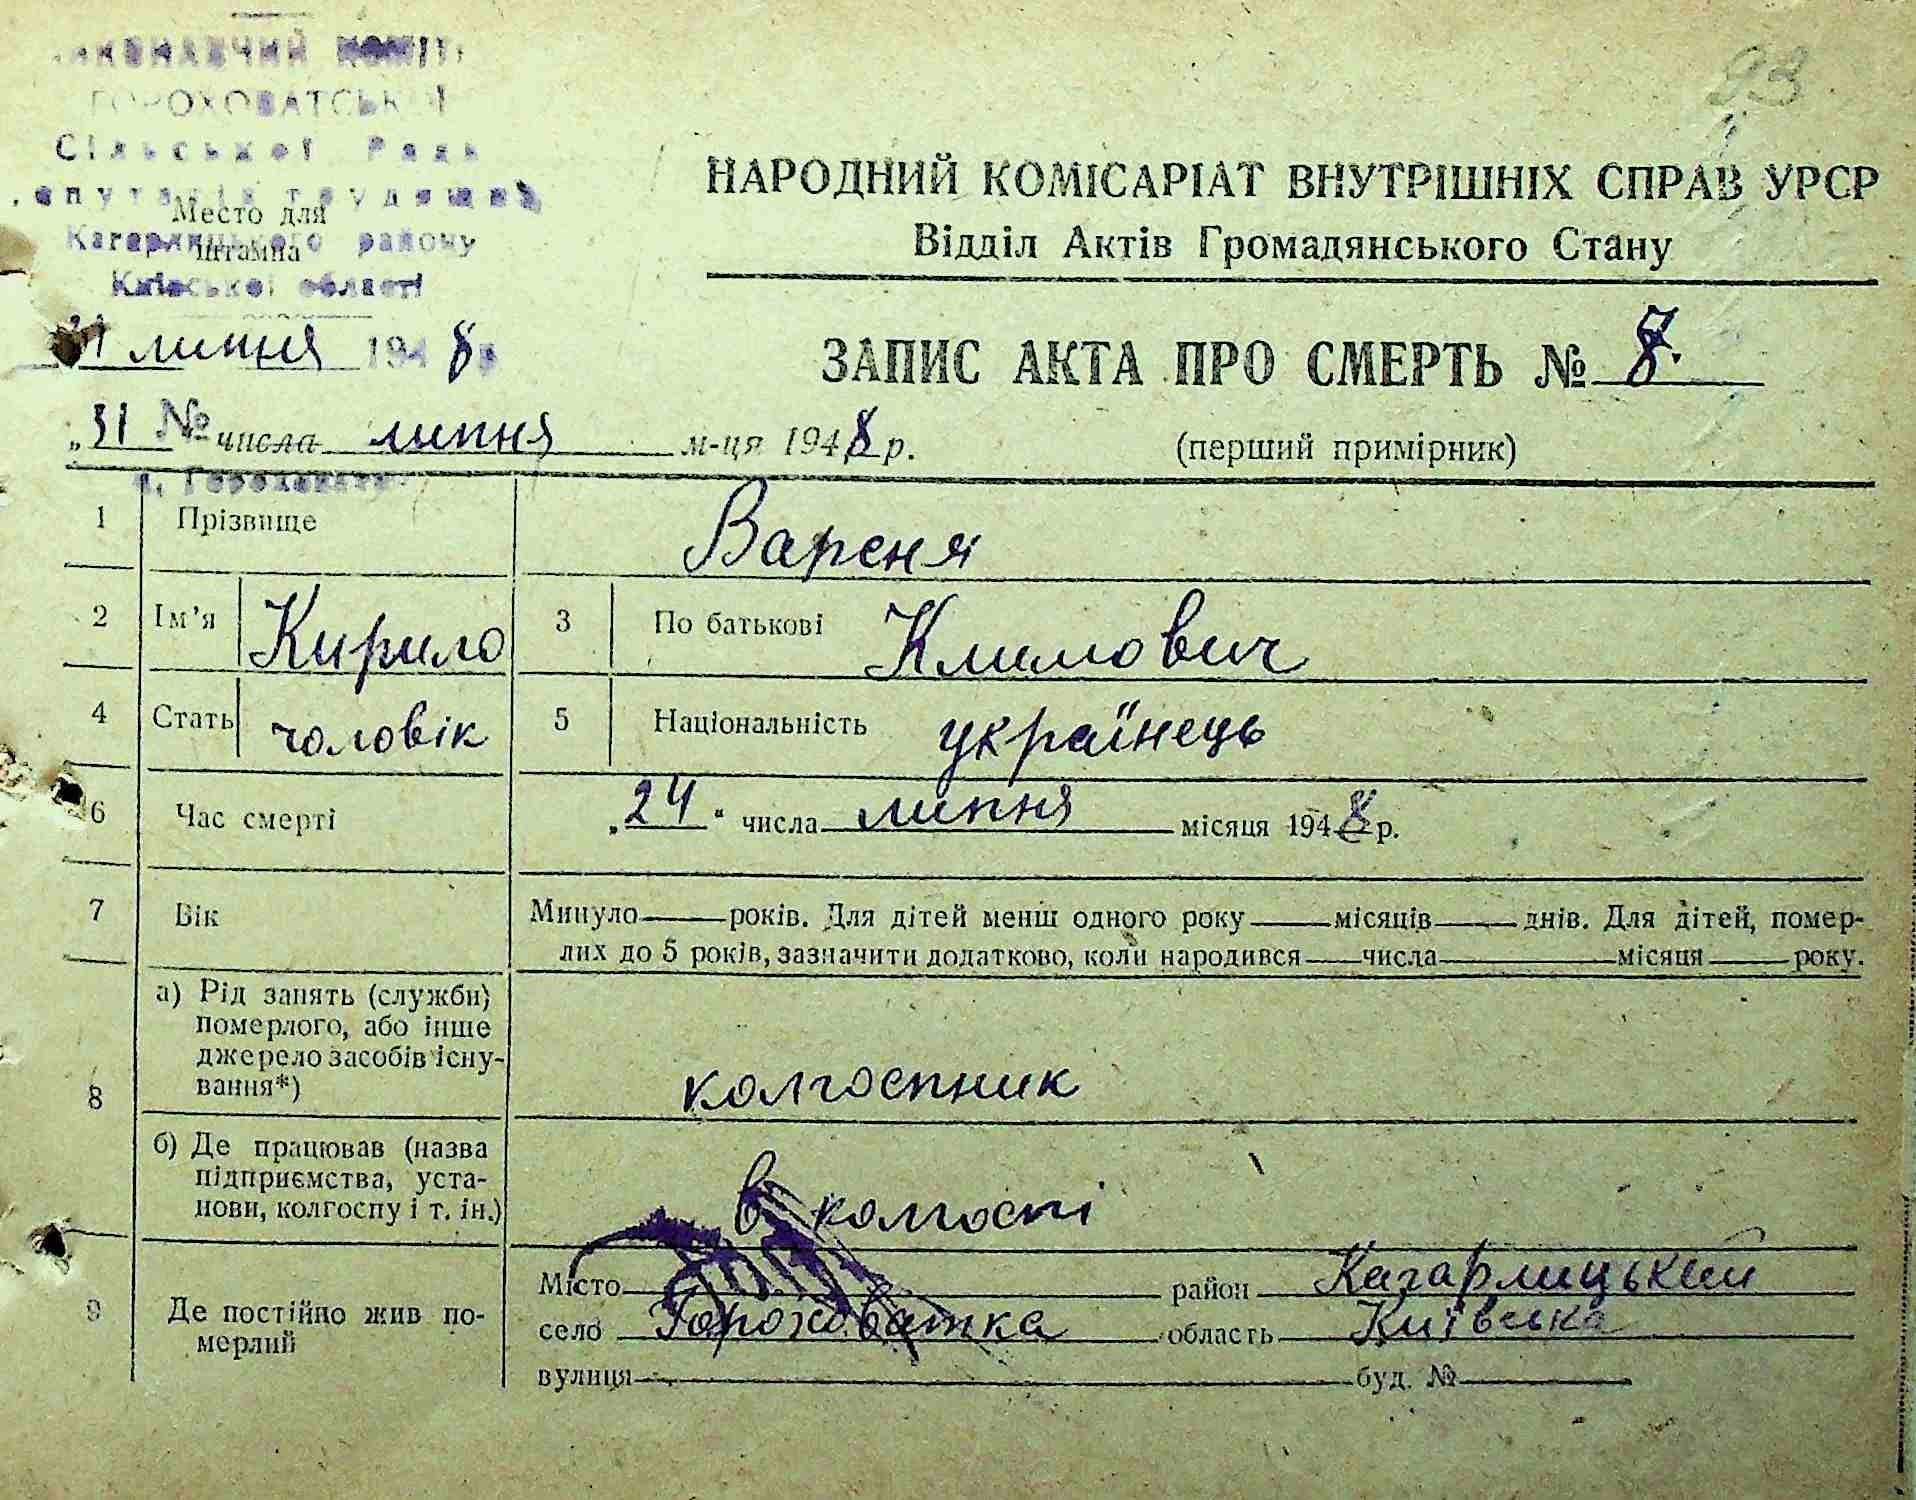 93
ВИКОНАВЧИЙ КОМІТЕТ
ГОРОХОВАТСЬКОЇ
Сільської Ради
депутатів трудящих
Место для
штампа
Кагарлицького району
Київської області
31 липня 1948 р
№
с. Гороховатка
НАРОДНИЙ КОМІСАРІАТ ВНУТРІШНІХ СПРАВ УРСР
Відділ Актів Громадянського Стану
ЗАПИС АКТА ПРО СМЕРТЬ № 8.
„31 числа липня м-ця 1948 р.
(перший примірник)
1 Прізвище Вареня
2 Ім'я Кирило 3 По батькові Климович
4 Стать чоловік 5 Національність українець
6 Час смерті „24" числа липня місяця 1948 р.
7 Вік Минуло років. Для дітей менш одного року місяців днів. Для дітей, помер-
лих до 5 років, зазначити додатково, коли народився числа місяця року.
8 а) Рід занять (служби)
померлого, або інше
джерело засобів існу-
вання*)
колгоспник
б) Де працював (назва
підприємства, уста-
нови, колгоспу і т. ін.)
в колгоспі
9 Де постійно жив по-
мерлий
Місто район Кагарлицький
село Гороховатка область Київська
вулиця буд. №